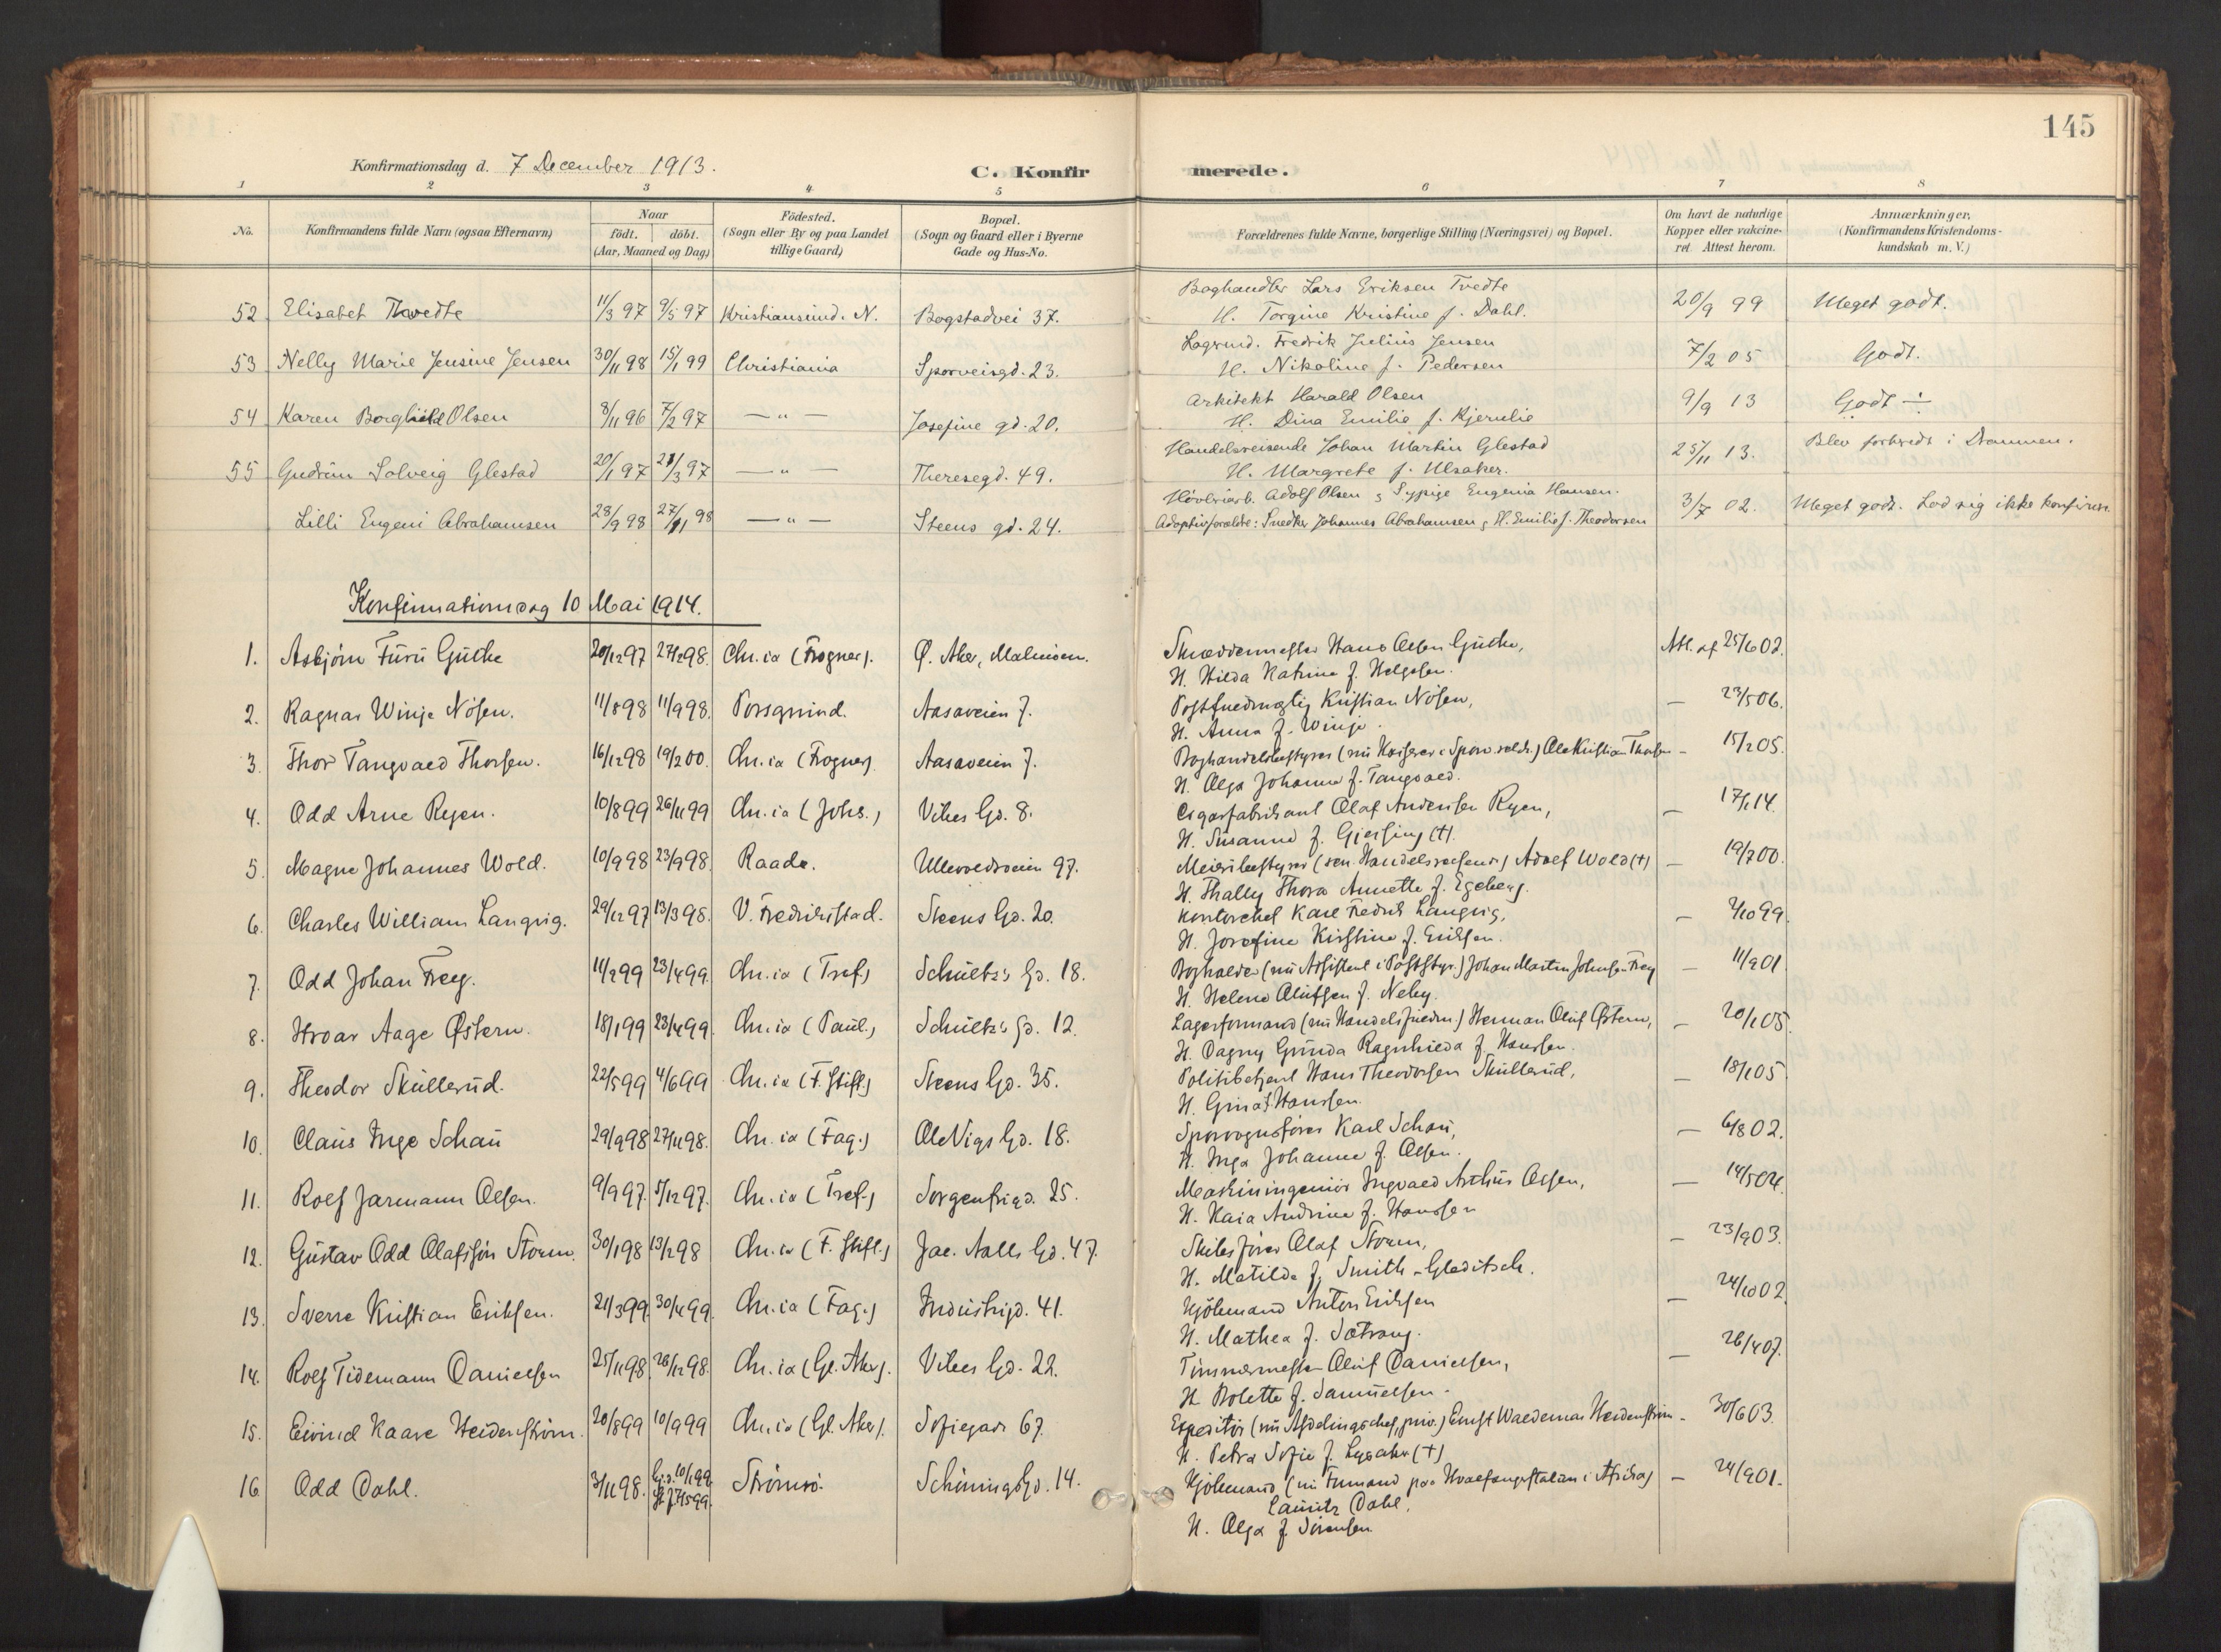 145
Konfirmationsdag d. 7 December 1913. C. Konfirmerede.
1 2 3 4 5 6 7 8
No. Konfirmandens fulde Navn (ogsaa Efternavn) Naar født. døbt. (Aar, Maaned og Dag) Födested. (Sogn eller By og paa Landet tillige Gaard) Bopæl. (Sogn og Gaard eller i Byerne Gade og Hus-No. Forældrenes fulde Navne, borgerlige Stilling (Næringsvei) og Bopæl. Om havt de naturlige Kopper eller vakcineret. Attest herom. Anmærkninger. (Konfirmandens Kristendomskundskab m. V.)
52 Elisabet Tvedte 11/3 97 9/5 97 Kristiansund. N. Bogstadvei 37. Boghandler Lars Eriksen Tvedte 20/9 99 Meget godt.
H. Torgine Kristine f. Dahl.
53 Nelly Marie Jensine Jensen 30/11 98 15/1 99 Christiania Sporveisgd. 23. Lagermd. Fredrik Julius Jensen 7/2 05 Godt.
H. Nikoline f. Pedersen
54 Karen Borghild Olsen 8/11 96 7/2 97 — " — Josefine gd. 20. Arkitekt Harald Olsen 9/9 13 Godt ÷
H. Dina Emilie f. Kjerulie
55 Gudrun Solveig Glestad 20/1 97 21/3 97 — " — Theresegd. 49. Handelsreisende Johan Martin Glestad 25/11 13. Blev forberedt i Drammen.
H. Margrete f. Ulsaker.
Lilli Eugeni Abrahamsen 28/9 98 27/11 98 — " — Steens gd. 24. Høvleriarb. Adolf Olsen & Sypige Eugenia Hansen. 3/7 02. Meget godt. Lod sig ikke konfirm.
Adoptivforældre: Snedker Johannes Abrahamsen & H. Emilie f. Theodorsen
Konfirmationsdag 10 Mai 1914.
1. Asbjørn Furu Guthe 20/12 97 27/2 98. Chr.ia (Frogner). Ø. Aker, Malmöen. Skræddermester Hans Olsen Guthe, Att. af 25/6 02.
H. Hilda Katrine f. Helgesen.
2. Ragnar Winje Nösen. 11/8 98 11/9 98. Porsgrund. Aasaveien 7. Postfuldmægtig Kristian Nösen, — 23/5 06.
H. Anna f. Winje.
3. Thor Tangvald Thorsen. 16/12 98 19/2 00. Chr.ia (Frogner) Aasaveien 7. Boghandelsbestyrer (nu Kasserer i Sporv.selsk.) Ole Kristian Thorsen — 15/2 05.
H. Olga Johanne f. Tangvald.
4. Odd Arne Ryen. 10/8 99 26/11 99 Chr.ia (Johs.) Vibes Gd. 8. Cigarfabrikant Olaf Andersen Ryen, — 17/1 14.
H. Susanne f. Gjersing (†).
5. Magne Johannes Wold. 10/9 98 23/9 98. Raade. Ullevoldsveien 97. Meieribestyrer (sen. Handelsreisende) Adolf Wold (†) — 19/7 00.
H. Thally Thora Annette f. Egeberg.
6. Charles William Langvig. 29/12 97 13/3 98. V. Fredrikstad. Steens Gd. 20. Kontorchef Karl Fredrik Langvig, — 2/10 99.
H. Josefine Kirstine f. Eriksen.
7. Odd Johan Frey. 11/2 99 23/4 99. Chr.ia (Tref.) Schultz's Gd. 18. Bogholder (nu Assistent i Poststyr.) Johan Martin Johnsen Frey — 11/9 01.
H. Helene Olufsen f. Neby.
8. Hroar Aage Østern. 18/1 99 23/4 99. Chr.ia (Paul.) Schultz's Gd. 12. Lagerformand (nu Handelsfuldm.) Herman Oluf Østern, — 20/1 05.
H. Dagny Gunda Ragnhilda f. Hanssen.
9. Theodor Skullerud. 22/5 99 4/6 99 Chr.ia (F. Stift.) Steens Gd. 35. Politibetjent Hans Theodorsen Skullerud, — 18/1 05.
H. Gina f. Hanssen.
10. Claus Inge Schau 29/9 98 27/11 98. Chr.ia (Fag.) Ole Vigs Gd. 18. Sporvognsfører Karl Schau, — 6/8 02.
H. Inga Johanne f. Olsen.
11. Rolf Jarmann Olsen. 9/9 97. 5/12 97. Chr.ia (Tref.) Sorgenfrigd. 25. Maskiningeniör Ingvald Arthur Olsen, — 14/5 04.
H. Kaia Andrine f. Hanssen
12. Gustav Odd Olafssön Storm. 30/1 98 13/2 98 Chr.ia (F. Stift.) Jac. Aalls Gd. 47. Skibsförer Olaf Storm, — 23/9 03.
H. Matilde f. Smith-Gleditsch.
13. Sverre Kristian Eriksen. 21/3 99. 30/4 99. Chr.ia (Fag.) Industrigd. 41. Kjöbmand Anton Eriksen — 24/10 02.
H. Mathea f. Sætrang.
14. Rolf Tidemann Danielsen 25/11 98. 26/12 98. Chr.ia (Gl. Aker). Vibes Gd. 22. Tömmermester Oluf Danielsen, — 26/4 07.
H. Bolette f. Samuelsen.
15. Eivind Kaare Heidenstrøm. 20/8 99 10/9 99 Chr.ia (Gl. Aker). Sofiegade 67. Expeditör (nu Afdelingschef, priv.) Ernst Waldemar Heidenström — 30/6 03.
H. Petra Sofie f. Lysaker (†)
16. Odd Dahl. 3/11 98. Hj.d. 10/1 99. St. f. 28/5 99. Strömsö. Schöningsgd. 14. Kjöbmand (nu Formand paa Hvalfangststation i Afrika) — 24/9 01.
Lauritz Dahl.
H. Olga f. Sörensen.